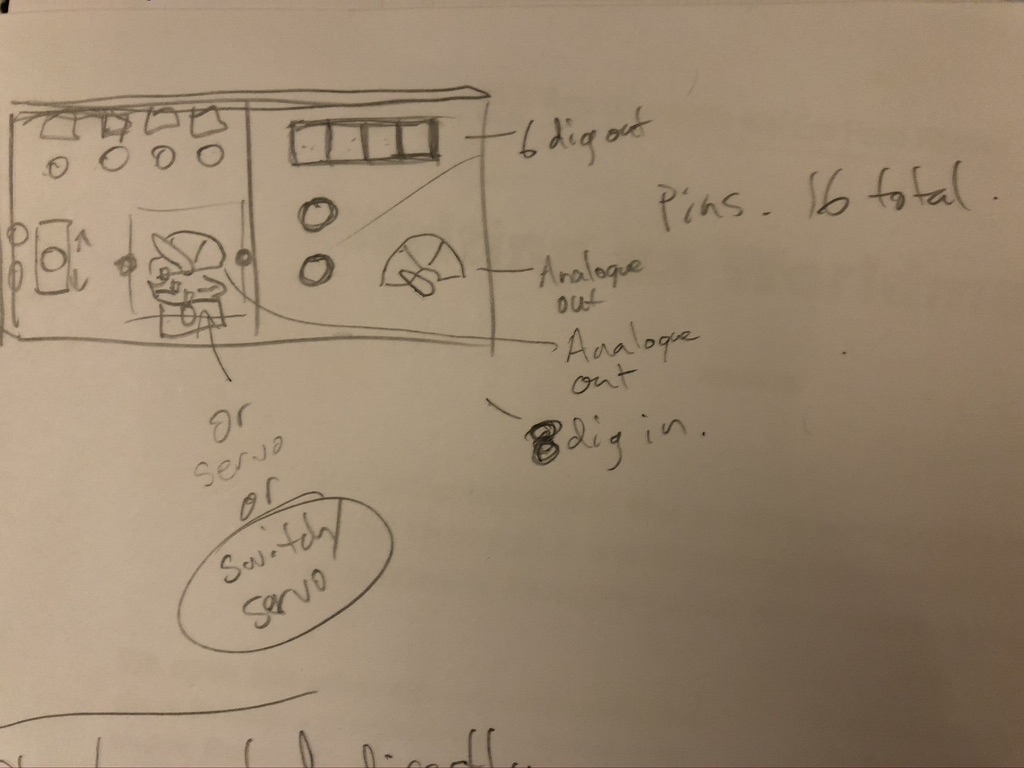 6 dig out
Pins. 16 total.
Analogue
out
Analogue
out
8 dig in.
or
servo
or
switch/
servo